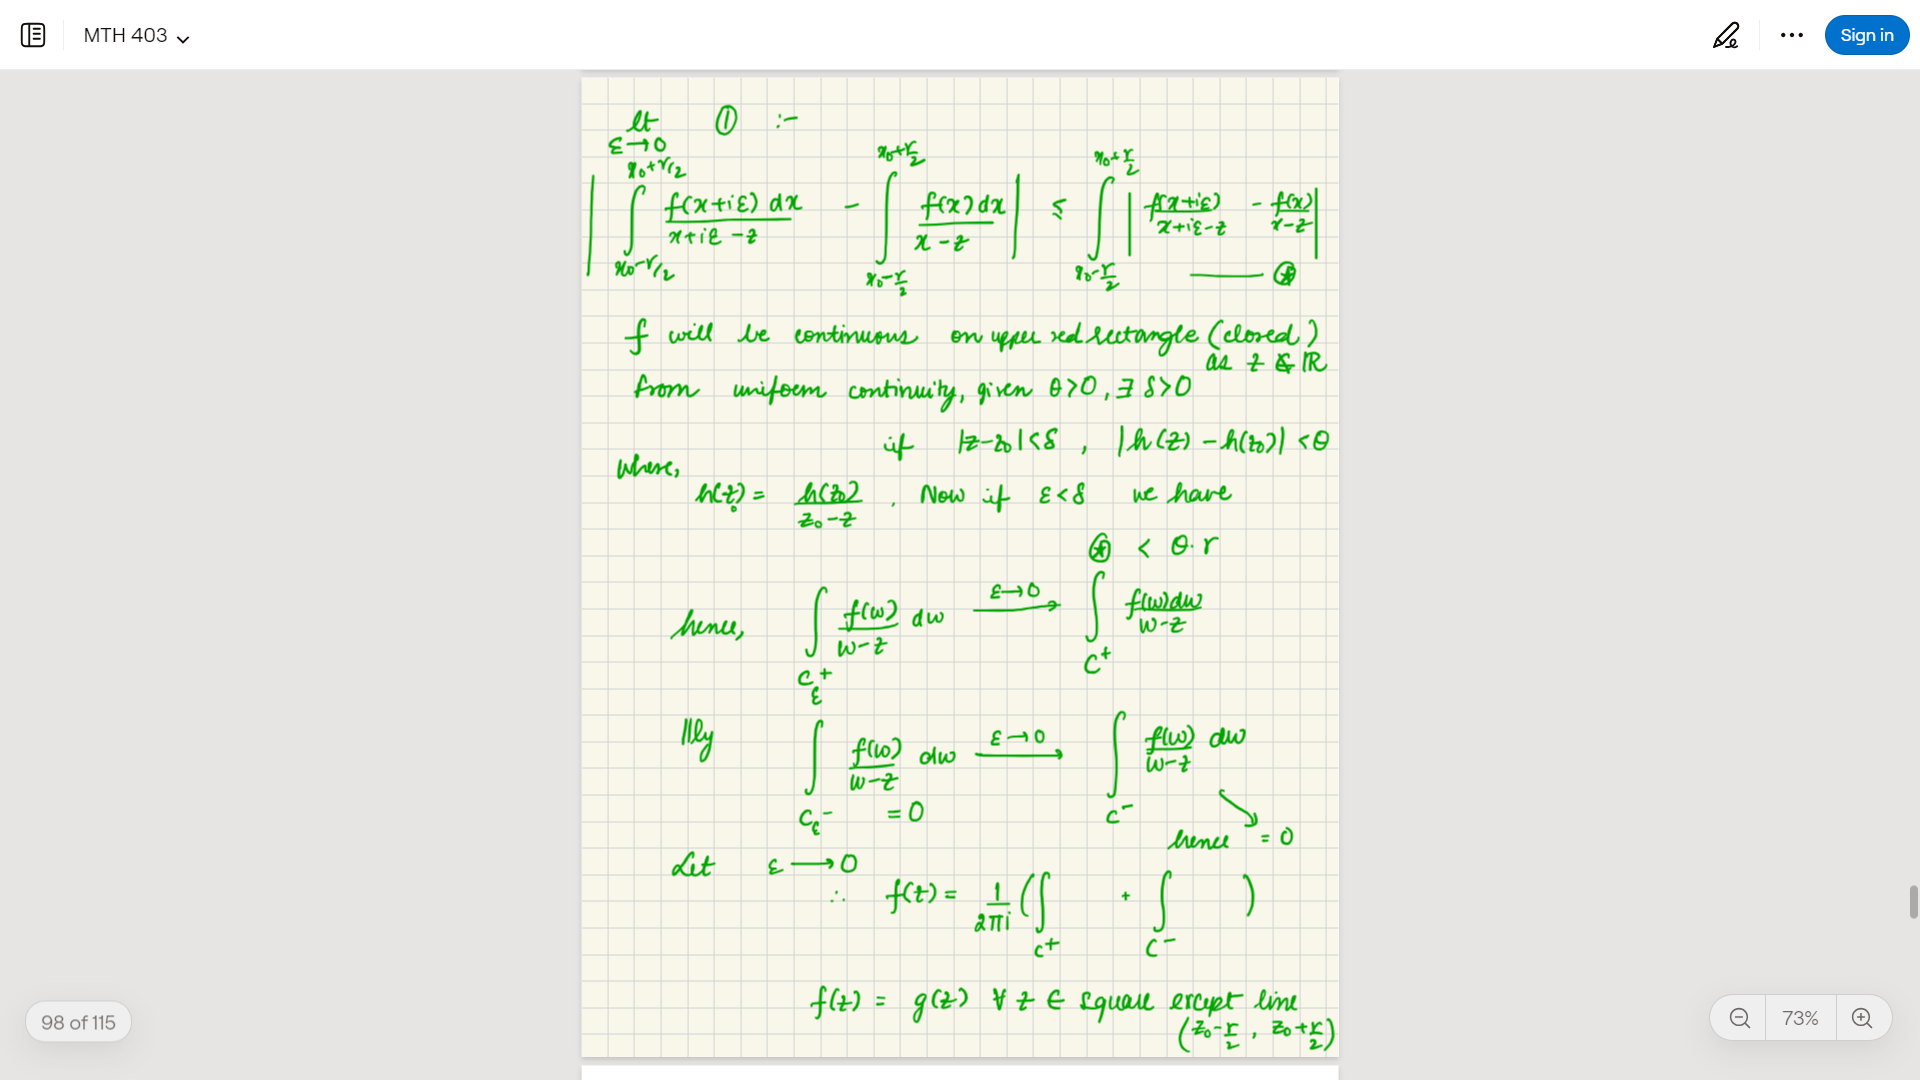 MTH 403
Sign in
lt ε→0 ① :-
| ∫_{x₀-r/2}^{x₀+r/2} f(x+iε) dx / (x+iε-z) - ∫_{x₀-r/2}^{x₀+r/2} f(x)dx / (x-z) | ≤ ∫_{x₀-r/2}^{x₀+r/2} | f(x+iε) / (x+iε-z) - f(x) / (x-z) | —— ⊛
f will be continuous on upper red rectangle (closed)
as z ∉ ℝ
from uniform continuity, given θ>0, ∃ δ>0
if |z-z₀|<δ , |h(z) - h(z₀)| <θ
where,
h(z₀) = h(z₀) / (z₀-z) . Now if ε<δ we have
⊛ < θ·r
hence, ∫_{C_ε^+} f(w) / (w-z) dw —ε→0→ ∫_{C^+} f(w)dw / (w-z)
|||ly ∫_{C_ε^-} f(w) / (w-z) dw = 0 —ε→0→ ∫_{C^-} f(w) / (w-z) dw
hence = 0
Let ε → 0
∴ f(z) = 1/2πi ( ∫_{C^+} + ∫_{C^-} )
f(z) = g(z) ∀ z ∈ square except line
(z₀-r/2 , z₀+r/2)
98 of 115
73%